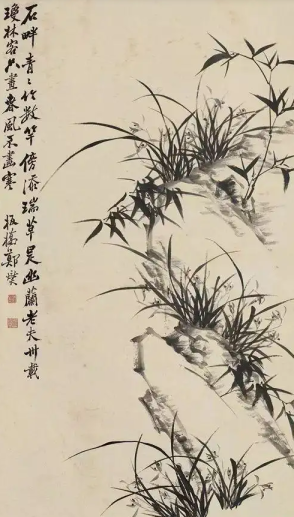 石畔青々竹數竿傍添瑞草是幽蘭老夫卅載
瓊林客只畫春風不畫寒
板橋鄭燮